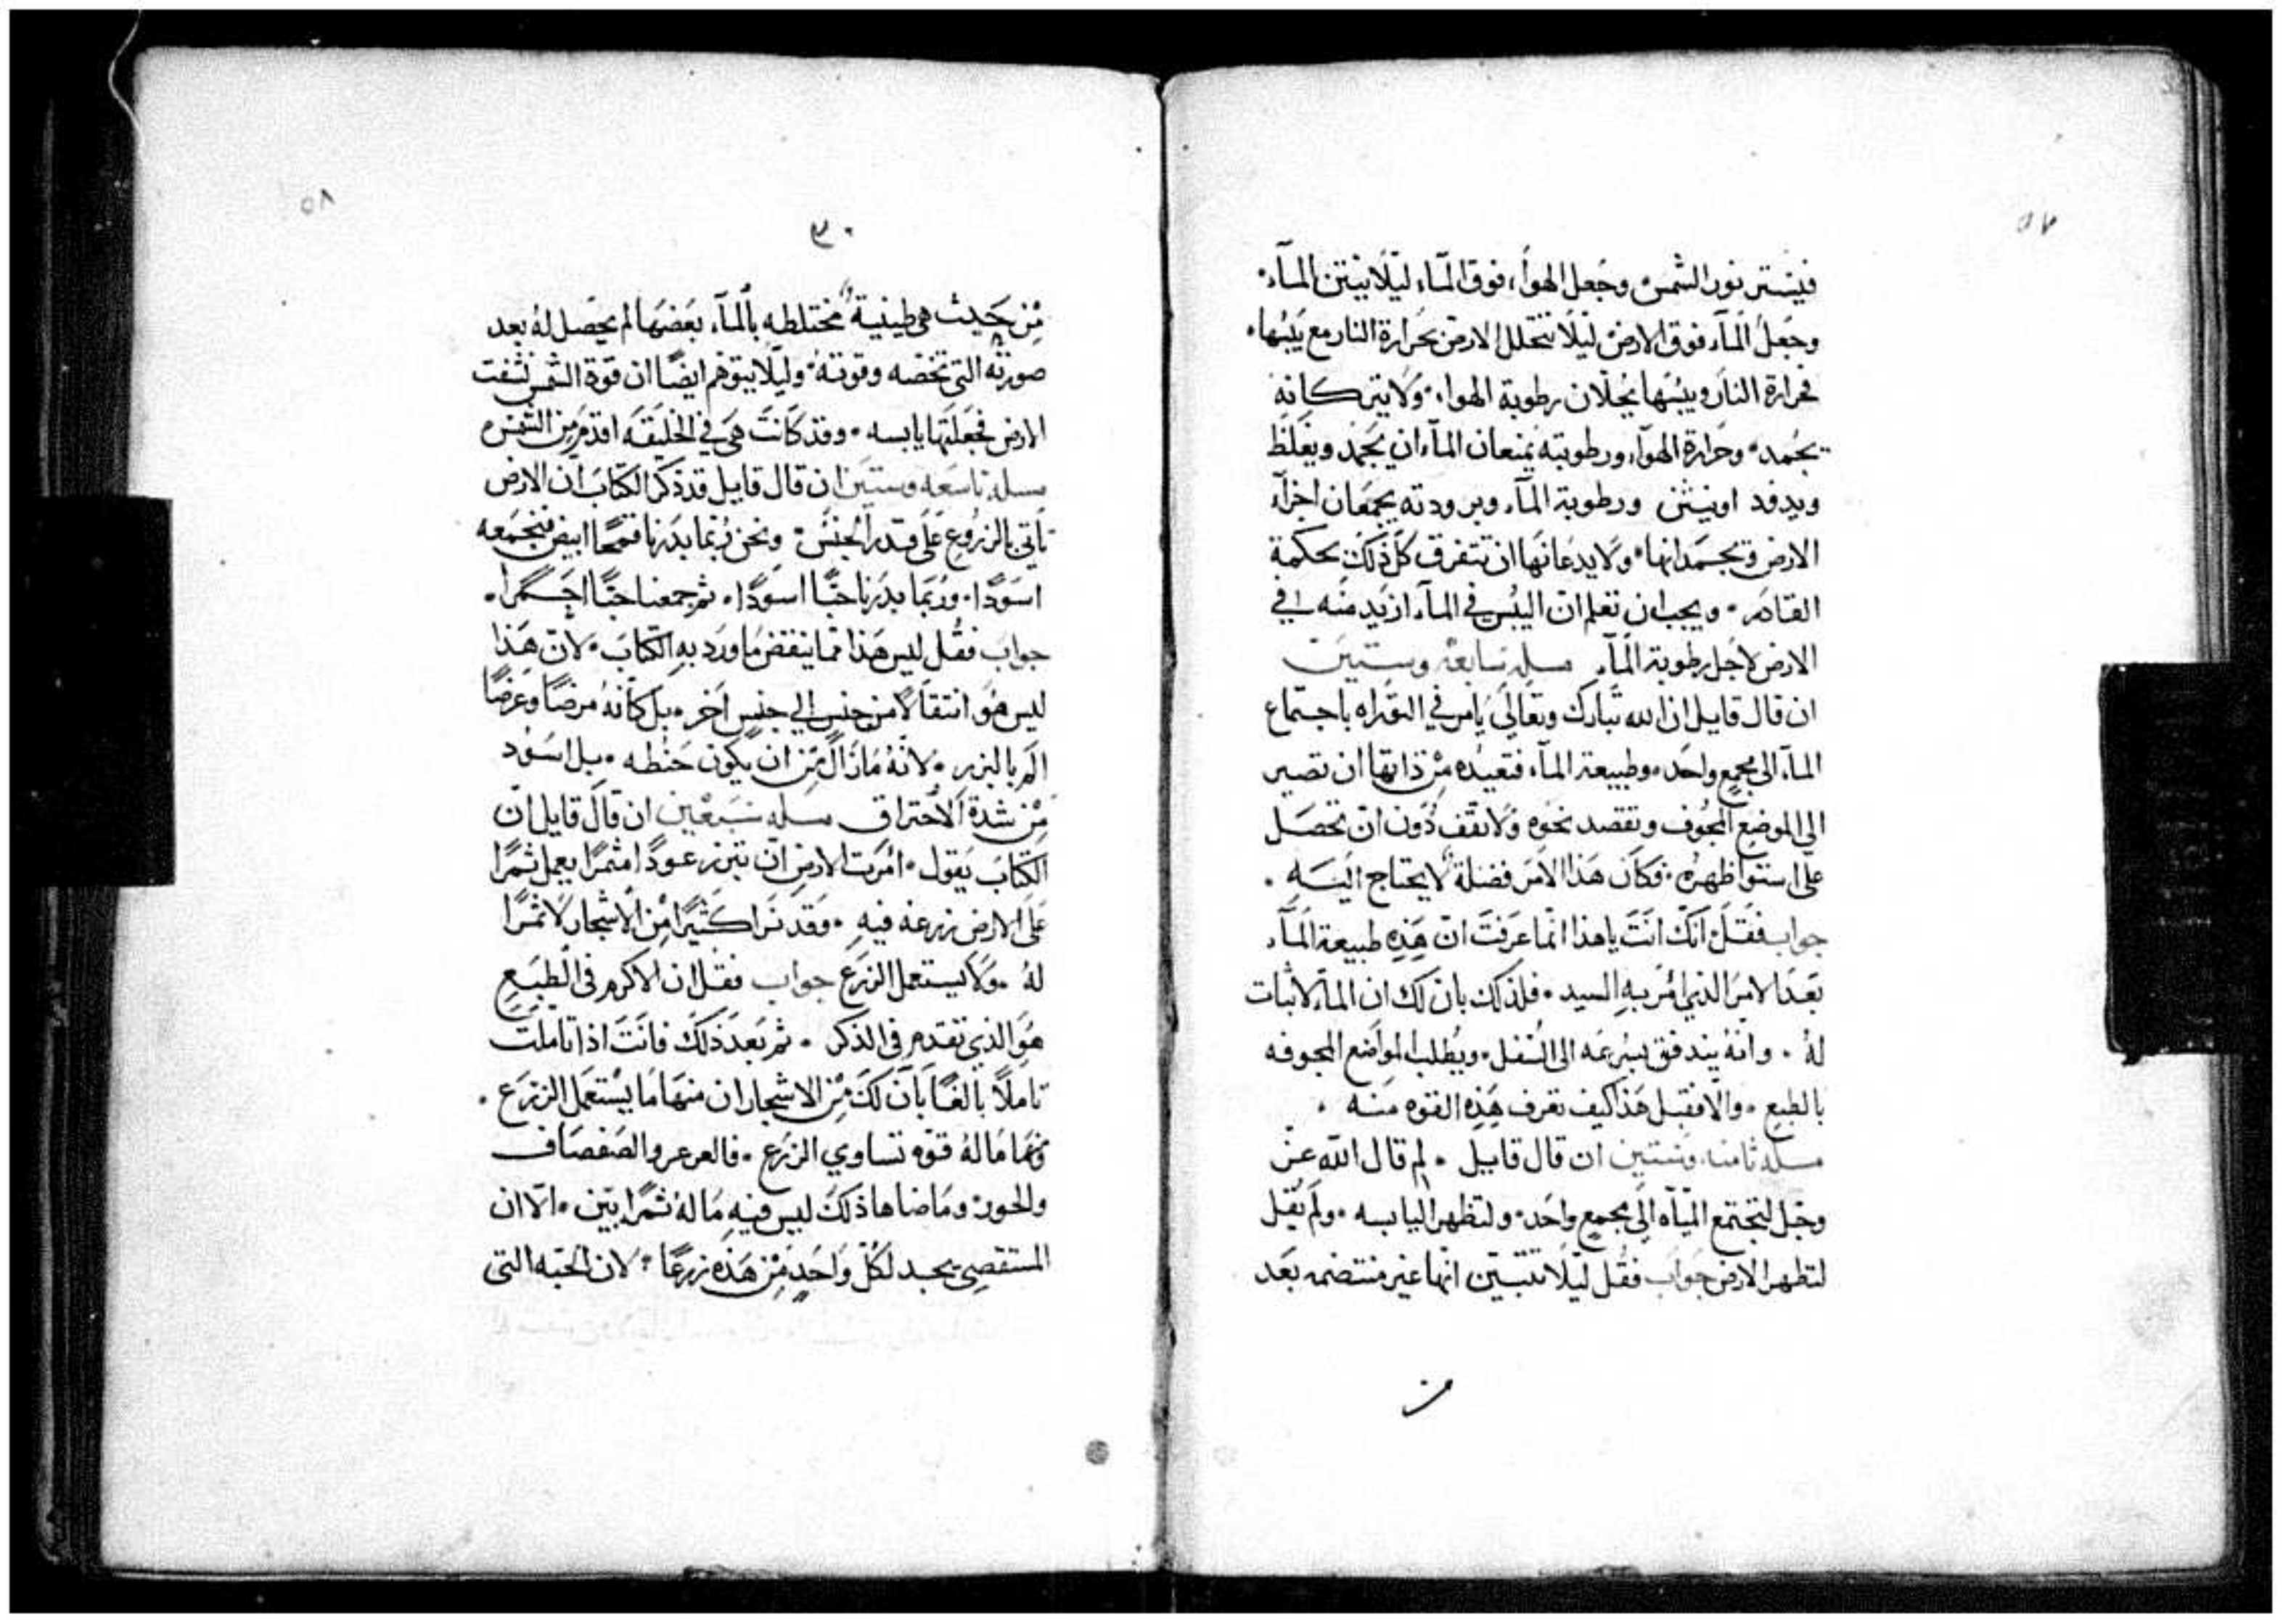 ٥٧
فيستر نور الشمس وجعل الهوآء فوق المآء ليلا ينتن المآء.
وجعل المآء فوق الارض ليلا تتحلل الارض بحرارة النار مع يبسها.
فحرارة النار ويبسها يحلان رطوبة الهواء. ولا يتركانه
يجمد. وحرارة الهوآء ورطوبته يمنعان المآء ان يجمد ويغلظ
ورطوبة المآء وبرودته يجمعان اجزآء
الارض ويجسمدانها. ولا يدعانها ان تتفرق كل ذلك بحكمة
القادر. ويجب ان تعلم ان اليبس في المآء ازيد منه في
الارض لاجل رطوبة المآء مسله سابعة وستين
ان قال قايل ان الله تبارك وتعالى يامر في التوراه باجتماع
المآء الى مجمع واحد. وطبيعة المآء فتعيده من ذاتها ان تصير
الى الموضع المجوف وتقصد نحوه ولا تقف دون ان تحصل
على استوا ظهره. فكان هذا الامر فضلة لا يحتاج اليه.
جواب فقل انك انت ياهذا انما عرفت ان هذه طبيعة المآء
بعد الامر الذي امر به السيد. فلذلك بان لك ان المآء لا ثبات
له. وانه يندفق بسرعه الى السفل. ويطلب المواضع المجوفه
بالطبع. والا فقبل هذا كيف تعرف هذه القوه منه.
مسله ثامنه وستين ان قال قايل. لم قال الله عز
وجل لتجتمع المياه الى مجمع واحد. ولتظهر اليابسه. ولم يقل
لتظهر الارض جواب فقل ليلا تتبين انها غير منتضمه بعد
من
٥٨
٣٠
من حيث هي طينية مختلطه بالمآء بعضها لم يحصل له بعد
صورته التي تخصه وقوته. وليلا يتوهم ايضا ان قوة الشمس نشفت
الارض فجعلتها يابسه. وقد كانت هي في الخليقه اقدم من الشمس
مسله تاسعه وستين ان قال قايل قد ذكر الكتاب ان الارض
تاتي بالزروع على قدر الجنس. ونحن ربما بدرنا قمحا ابيض فنجمعه
اسودا. وربما بدرنا حبا اسودا. ثم جمعنا حبا احمرا.
جواب فقل ليس هذا مما ينقض ما ورد به الكتاب. لان هذا
ليس هو انتقالا من جنس الى جنس اخر. بل كانه مرضا وعرضا
الم بالبزر. لانه ما زال من ان يكون حنطه. بل اسود
من شدة الاحتراق مسله سبعين ان قال قايل ان
الكتاب يقول. امرت الارض ان تبرز عودا مثمرا يعمل ثمرا
على الارض زرعه فيه. وقد نرا كثيرا من الاشجار لا ثمرا
له. ولا يستعمل الزرع جواب فقل ان الاكرم في الطبع
هو الذي تقدم في الذكر. ثم بعد ذلك فانت اذا تاملت
تاملا بالغا بان لك من الاشجار ان منها ما يستعمل الزرع.
ومنها ما له قوه تساوي الزرع. فالعرعر والصفصاف
والحور وما ضاها ذلك ليس فيه ما له ثمرا بين. الا ان
المستقصي يجد لكل واحد من هذه زرعا. لان الحبه التي